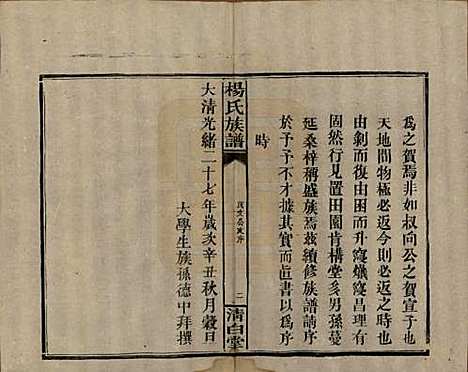 爲之賀焉非如叔向公之賀宣子也
天地間物極必返今則必返之時也
由剝而復由困而升寖熾寖昌理有
固然行見置田園肯構堂多男孫蔓
延桑梓稱盛族焉茲續修族譜請序
於予予不才據其實而直書以爲序
時
楊氏族譜
二
清白堂
大清光緒二十七年歲次辛丑秋月穀日
大學生族孫德中拜撰